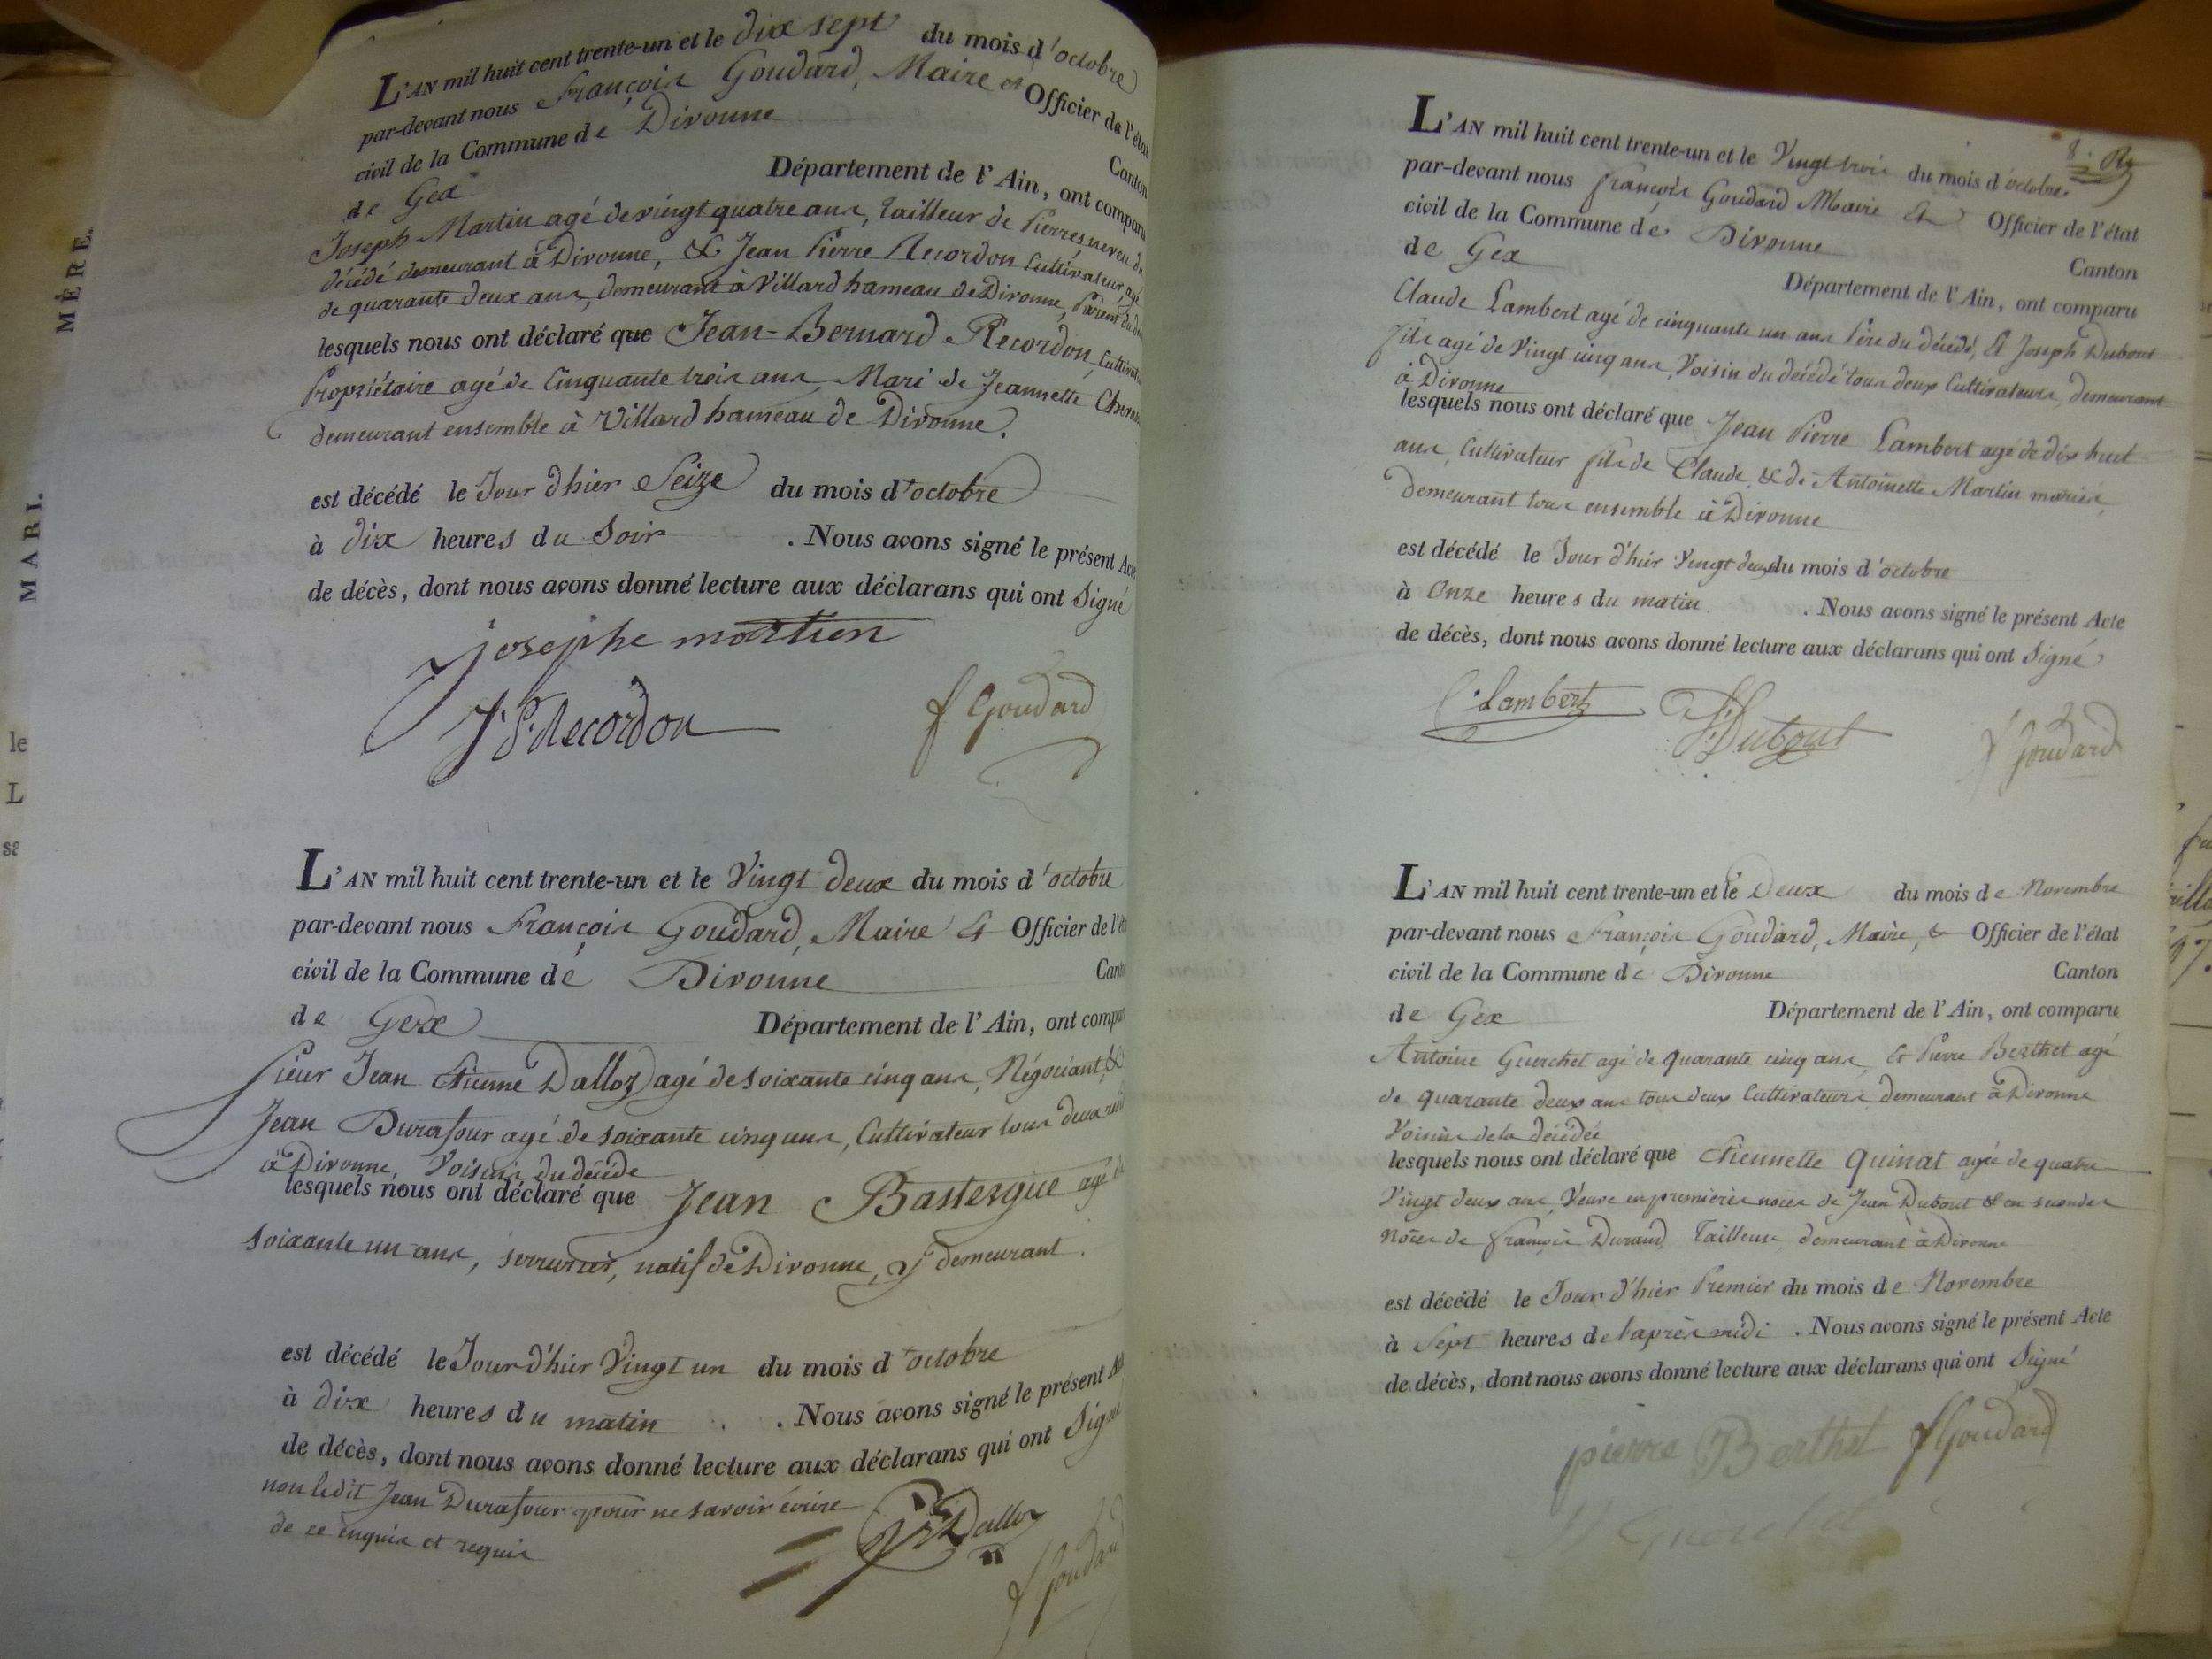 MÈRE.
MARI.
le
L
L'AN mil huit cent trente-un et le dix sept du mois d'octobre
par-devant nous François Goudard, Maire et Officier de l'état
civil de la Commune de Divonne Canton
de Gex Département de l'Ain, ont comparu
Joseph Martin agé de vingt quatre ans, Tailleur de Pierres, neveu du
décédé demeurant à Divonne, & Jean Pierre Recordon Cultivateur, agé
de quarante deux ans, demeurant à Villard hameau de Divonne, Parent du
lesquels nous ont déclaré que Jean-Bernard Recordon,
Propriétaire agé de Cinquante trois ans, Mari de Jeannette
demeurant ensemble à Villard hameau de Divonne.
est décédé le Jour d'hier Seize du mois d'octobre
à dix heures du Soir . Nous avons signé le présent Acte
de décès, dont nous avons donné lecture aux déclarans qui ont Signé
josephe martien
J P. Recordon f Goudard
L'AN mil huit cent trente-un et le Vingt deux du mois d'octobre
par-devant nous François Goudard, Maire Et Officier de l'
civil de la Commune dé Divonne Cant
de Gex Département de l'Ain, ont compar
Sieur Jean Etienne Dalloz agé de soixante cinq ans, Négociant, &
Jean Durafour agé de soixante cinq ans, Cultivateur tous deux
à Divonne, Voisins du décédé
lesquels nous ont déclaré que Jean Bastergue agé de
soixante un ans, serrurier, natif de Divonne, y demeurant.
est décédé le Jour d'hier Vingt un du mois d'octobre
à dix heures du matin . Nous avons signé le présent A
de décès, dont nous avons donné lecture aux déclarans qui ont Signé
non ledit Jean Durafour pour ne savoir écrire
de ce enquis et requis
Dalloz
f Goudard
8.
L'AN mil huit cent trente-un et le Vingt trois du mois d'octobre
par-devant nous François Goudard Maire Et Officier de l'état
civil de la Commune dé Divonne Canton
de Gex Département de l'Ain, ont comparu
Claude Lambert agé de cinquante un ans Père du décédé, Et Joseph Dubout
fils agé de Vingt cinq ans, Voisin du décédé tous deux Cultivateurs, demeurant
à Divonne
lesquels nous ont déclaré que Jean Pierre Lambert agé de dix huit
ans, Cultivateur fils de Claude, & de Antoinette Martin mariés,
demeurant tous ensemble à Divonne
est décédé le Jour d'hier Vingt deux du mois d'octobre
à Onze heures du matin . Nous avons signé le présent Acte
de décès, dont nous avons donné lecture aux déclarans qui ont Signé
C. Lambert J Dubout f Goudard
L'AN mil huit cent trente-un et le Deux du mois de Novembre
par-devant nous François Goudard, Maire, & Officier de l'état
civil de la Commune de Divonne Canton
de Gex Département de l'Ain, ont comparu
Antoine Guerchet agé de quarante cinq ans, Et Pierre Berthet agé
de quarante deux ans tous deux Cultivateurs, demeurant à Divonne
Voisins de la décédée
lesquels nous ont déclaré que Etiennette Quinat agée de quatre
Vingt deux ans, Veuve en premières noces de Jean Dubout & en secondes
Noces de François Durand, Tailleuse, demeurant à Divonne
est décédé le Jour d'hier Premier du mois de Novembre
à Sept heures de l'après midi . Nous avons signé le présent Acte
de décès, dont nous avons donné lecture aux déclarans qui ont Signé
pierre Berthet f Goudard
Guerchet